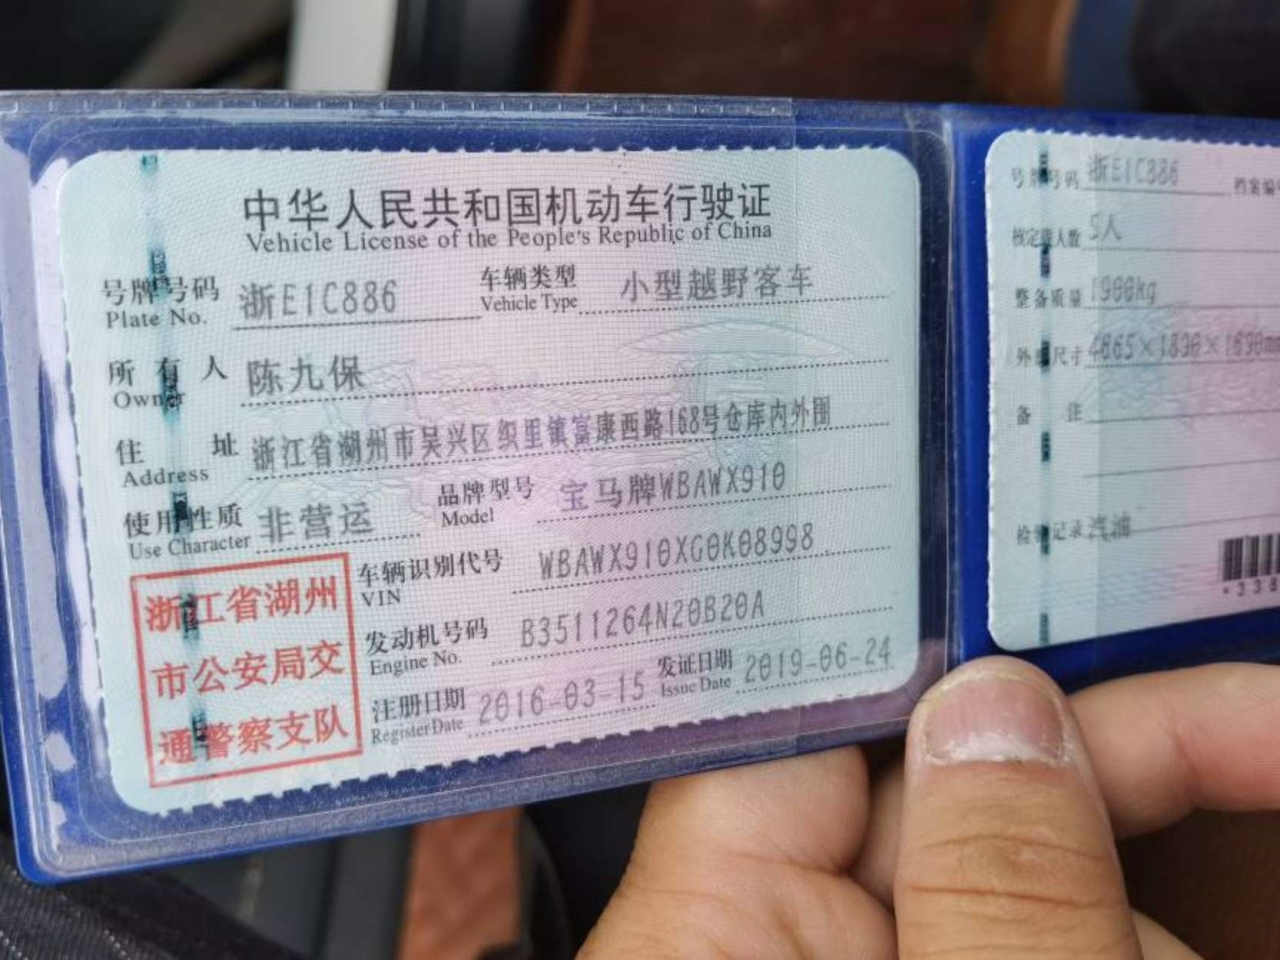 中华人民共和国机动车行驶证
Vehicle License of the People's Republic of China
号牌号码 浙E1C886 车辆类型 小型越野客车
Plate No. Vehicle Type
所有人 陈九保
Owner
住址 浙江省湖州市吴兴区织里镇富康西路168号仓库内外围
Address
使用性质 非营运 品牌型号 宝马牌WBAWX910
Use Character Model
车辆识别代号 WBAWX910XG0K08998
VIN
发动机号码 B3511264N20B20A
Engine No.
注册日期 2016-03-15 发证日期 2019-06-24
Register Date Issue Date
浙江省湖州
市公安局交
通警察支队
号牌号码 浙E1C886 档案编
核定载人数 5人
整备质量 1900kg
外廓尺寸
备注
检验记录 汽油